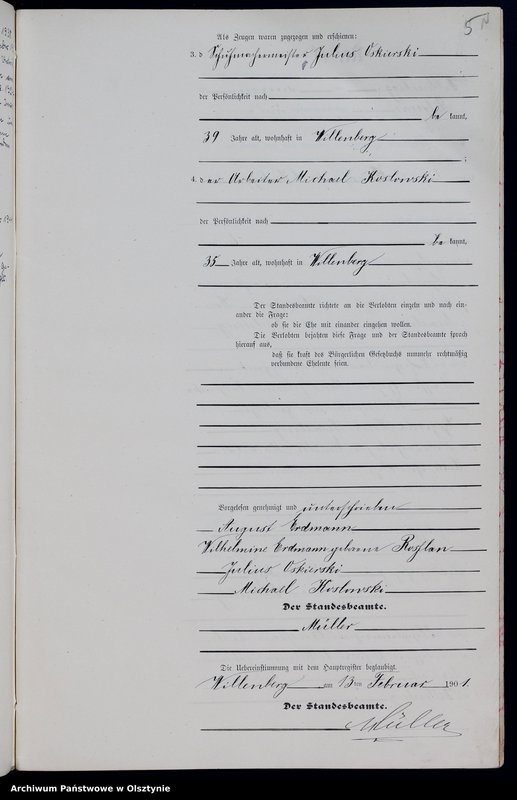 5
Als Zeugen waren zugezogen und erschienen:
3. d Schuhmachermeister Julius Oskierski
der Persönlichkeit nach
be kannt,
39 Jahre alt, wohnhaft in Willenberg
;
4. der Arbeiter Michael Koslowski
der Persönlichkeit nach
be kannt,
35 Jahre alt, wohnhaft in Willenberg
Der Standesbeamte richtete an die Verlobten einzeln und nach ein-
ander die Frage:
ob sie die Ehe mit einander eingehen wollen.
Die Verlobten bejahten diese Frage und der Standesbeamte sprach
hierauf aus,
daß sie kraft des Bürgerlichen Gesetzbuchs nunmehr rechtmäßig
verbundene Eheleute seien.
Vorgelesen, genehmigt und unterschrieben
August Erdmann
Wilhelmine Erdmann geborene
Julius Oskierski
Michael Koslowski
Der Standesbeamte.
Müller
Die Uebereinstimmung mit dem Hauptregister beglaubigt.
Willenberg am 13ten Februar 1901.
Der Standesbeamte.
Müller
Archiwum Państwowe w Olsztynie